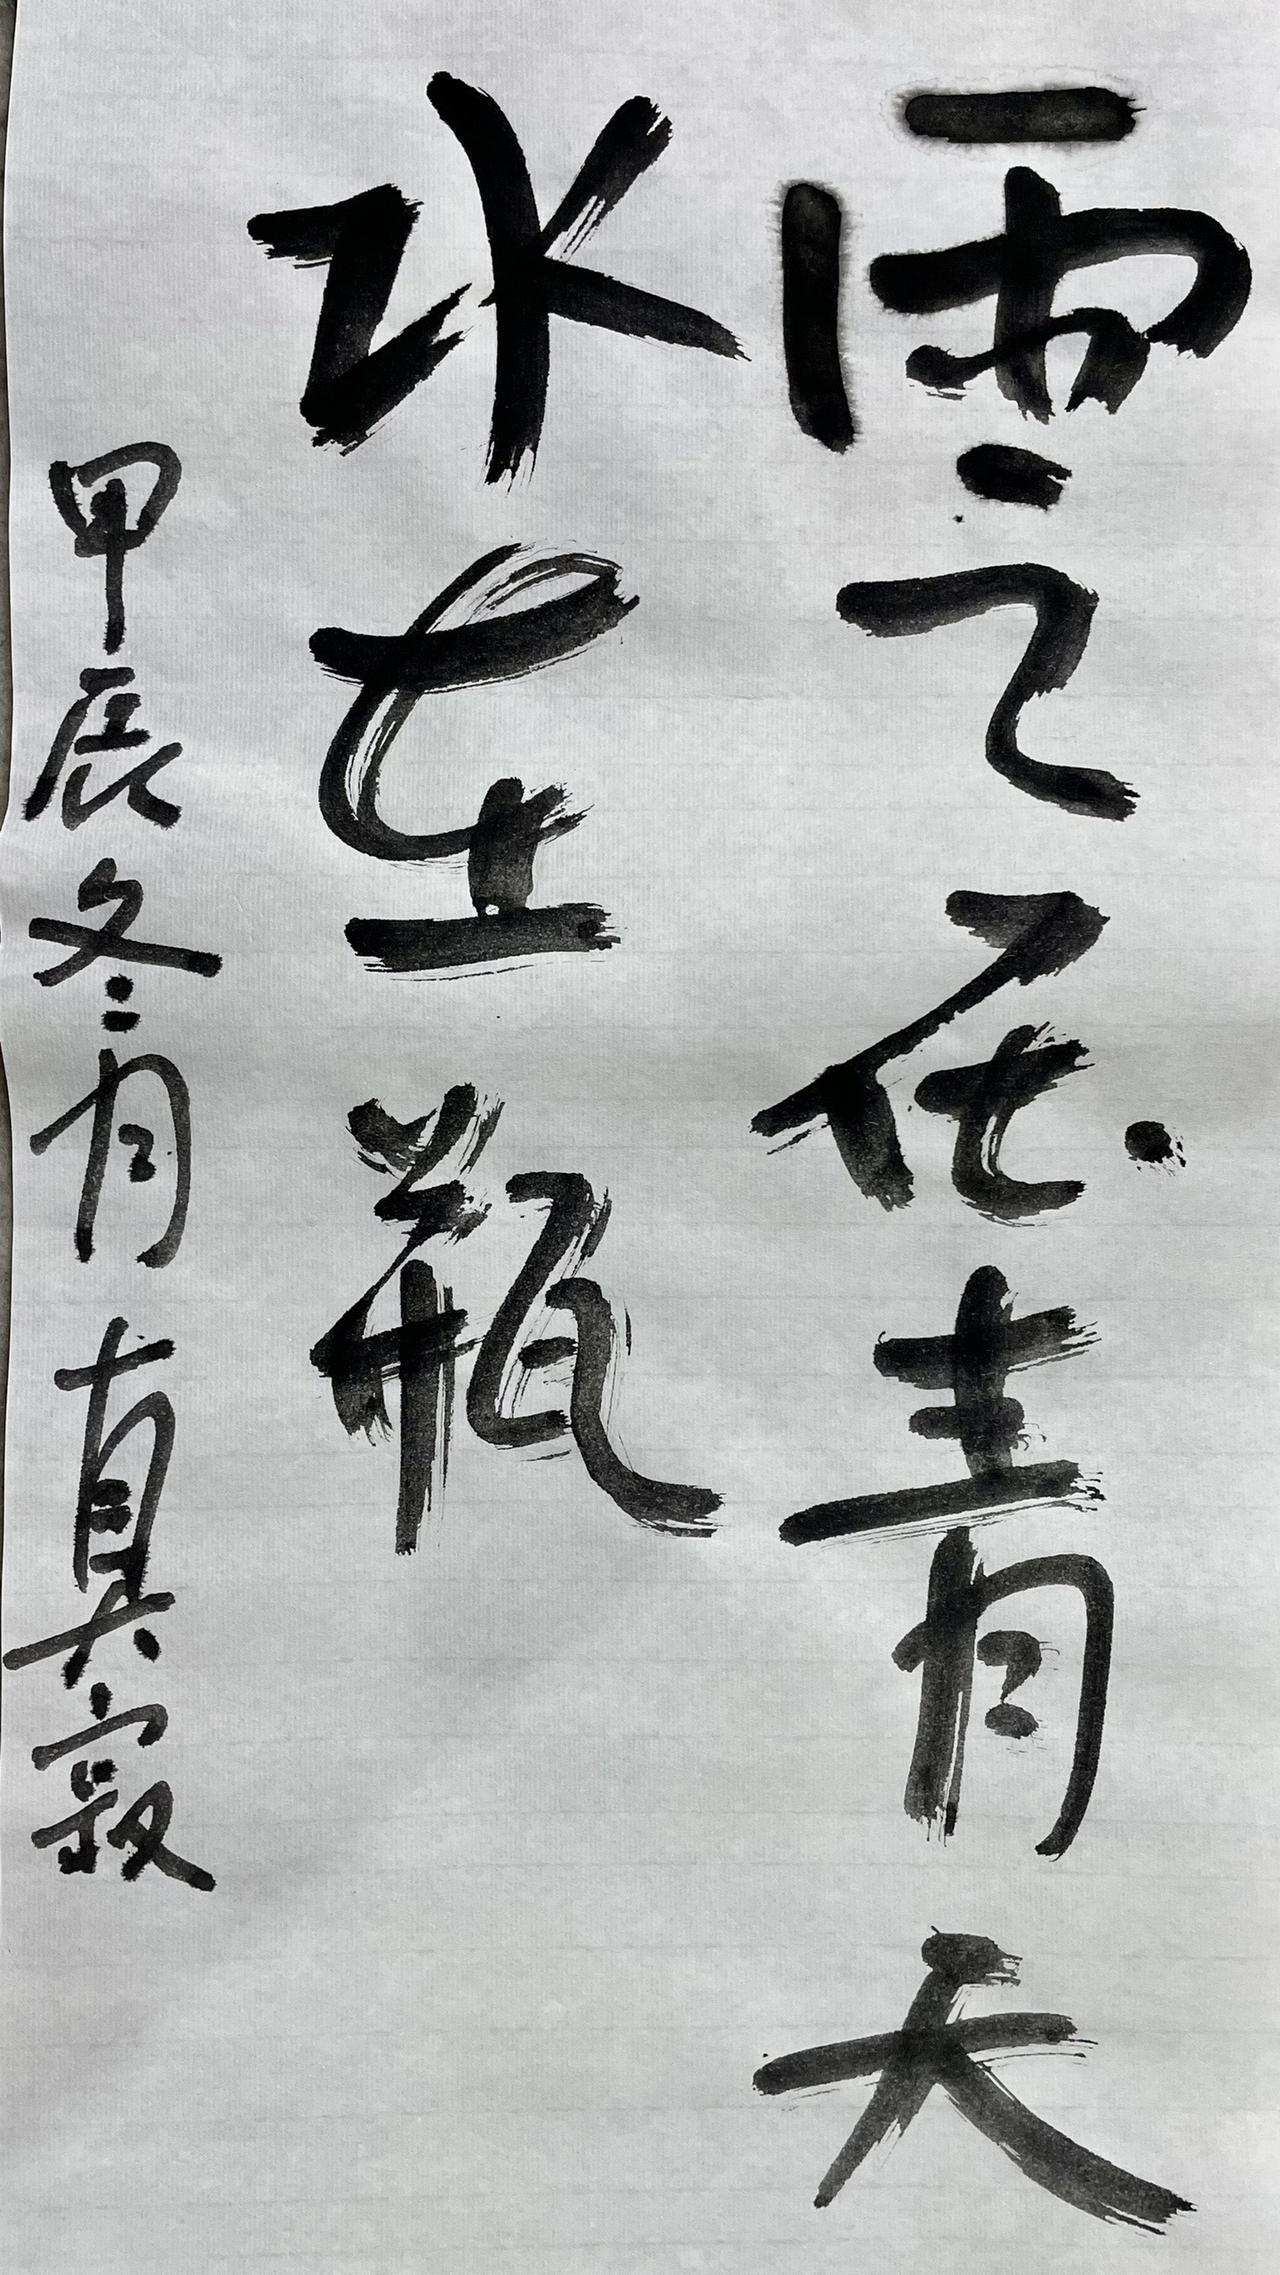 雲在青天
水在瓶
甲辰冬月 真寂